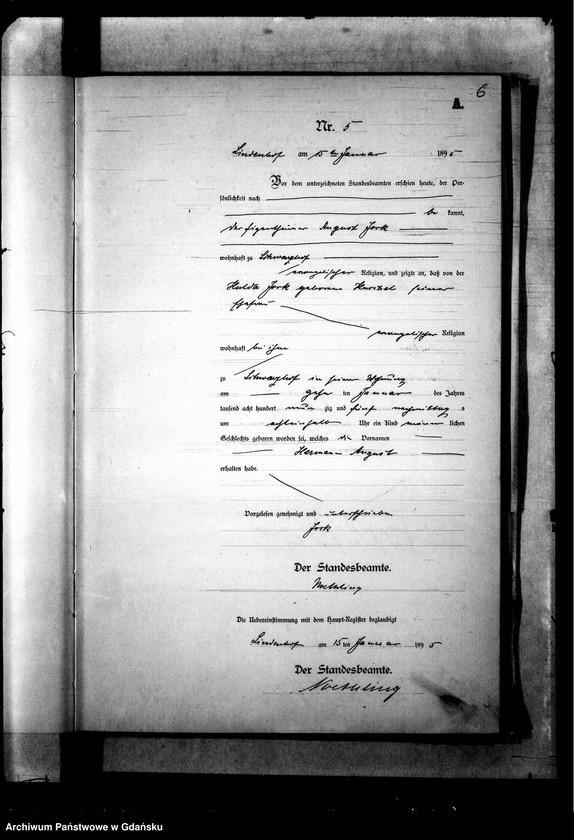 6
A.
Nr. 5
Lindenhof am 15 ten Januar 1895
Vor dem unterzeichneten Standesbeamten erschien heute, der Per-
sönlichkeit nach
be kannt,
der Eigenthümer August Jork
wohnhaft zu
evangelischer Religion, und zeigte an, daß von der
Hulda Jork geborene seiner
Ehefrau
evangelischer Religion
wohnhaft bei ihm
zu in seiner Wohnung
am ten Januar des Jahres
tausend acht hundert neun zig und fünf nachmittag s
um achteinhalb Uhr ein Kind männ lichen
Geschlechts geboren worden sei, welches die Vornamen
Hermann August
erhalten habe.
Vorgelesen, genehmigt und unterschrieben
Jork
Der Standesbeamte.
Noethling
Die Uebereinstimmung mit dem Haupt-Register beglaubigt
Lindenhof am 15 ten Januar 1895
Der Standesbeamte.
Noethling
Archiwum Państwowe w Gdańsku